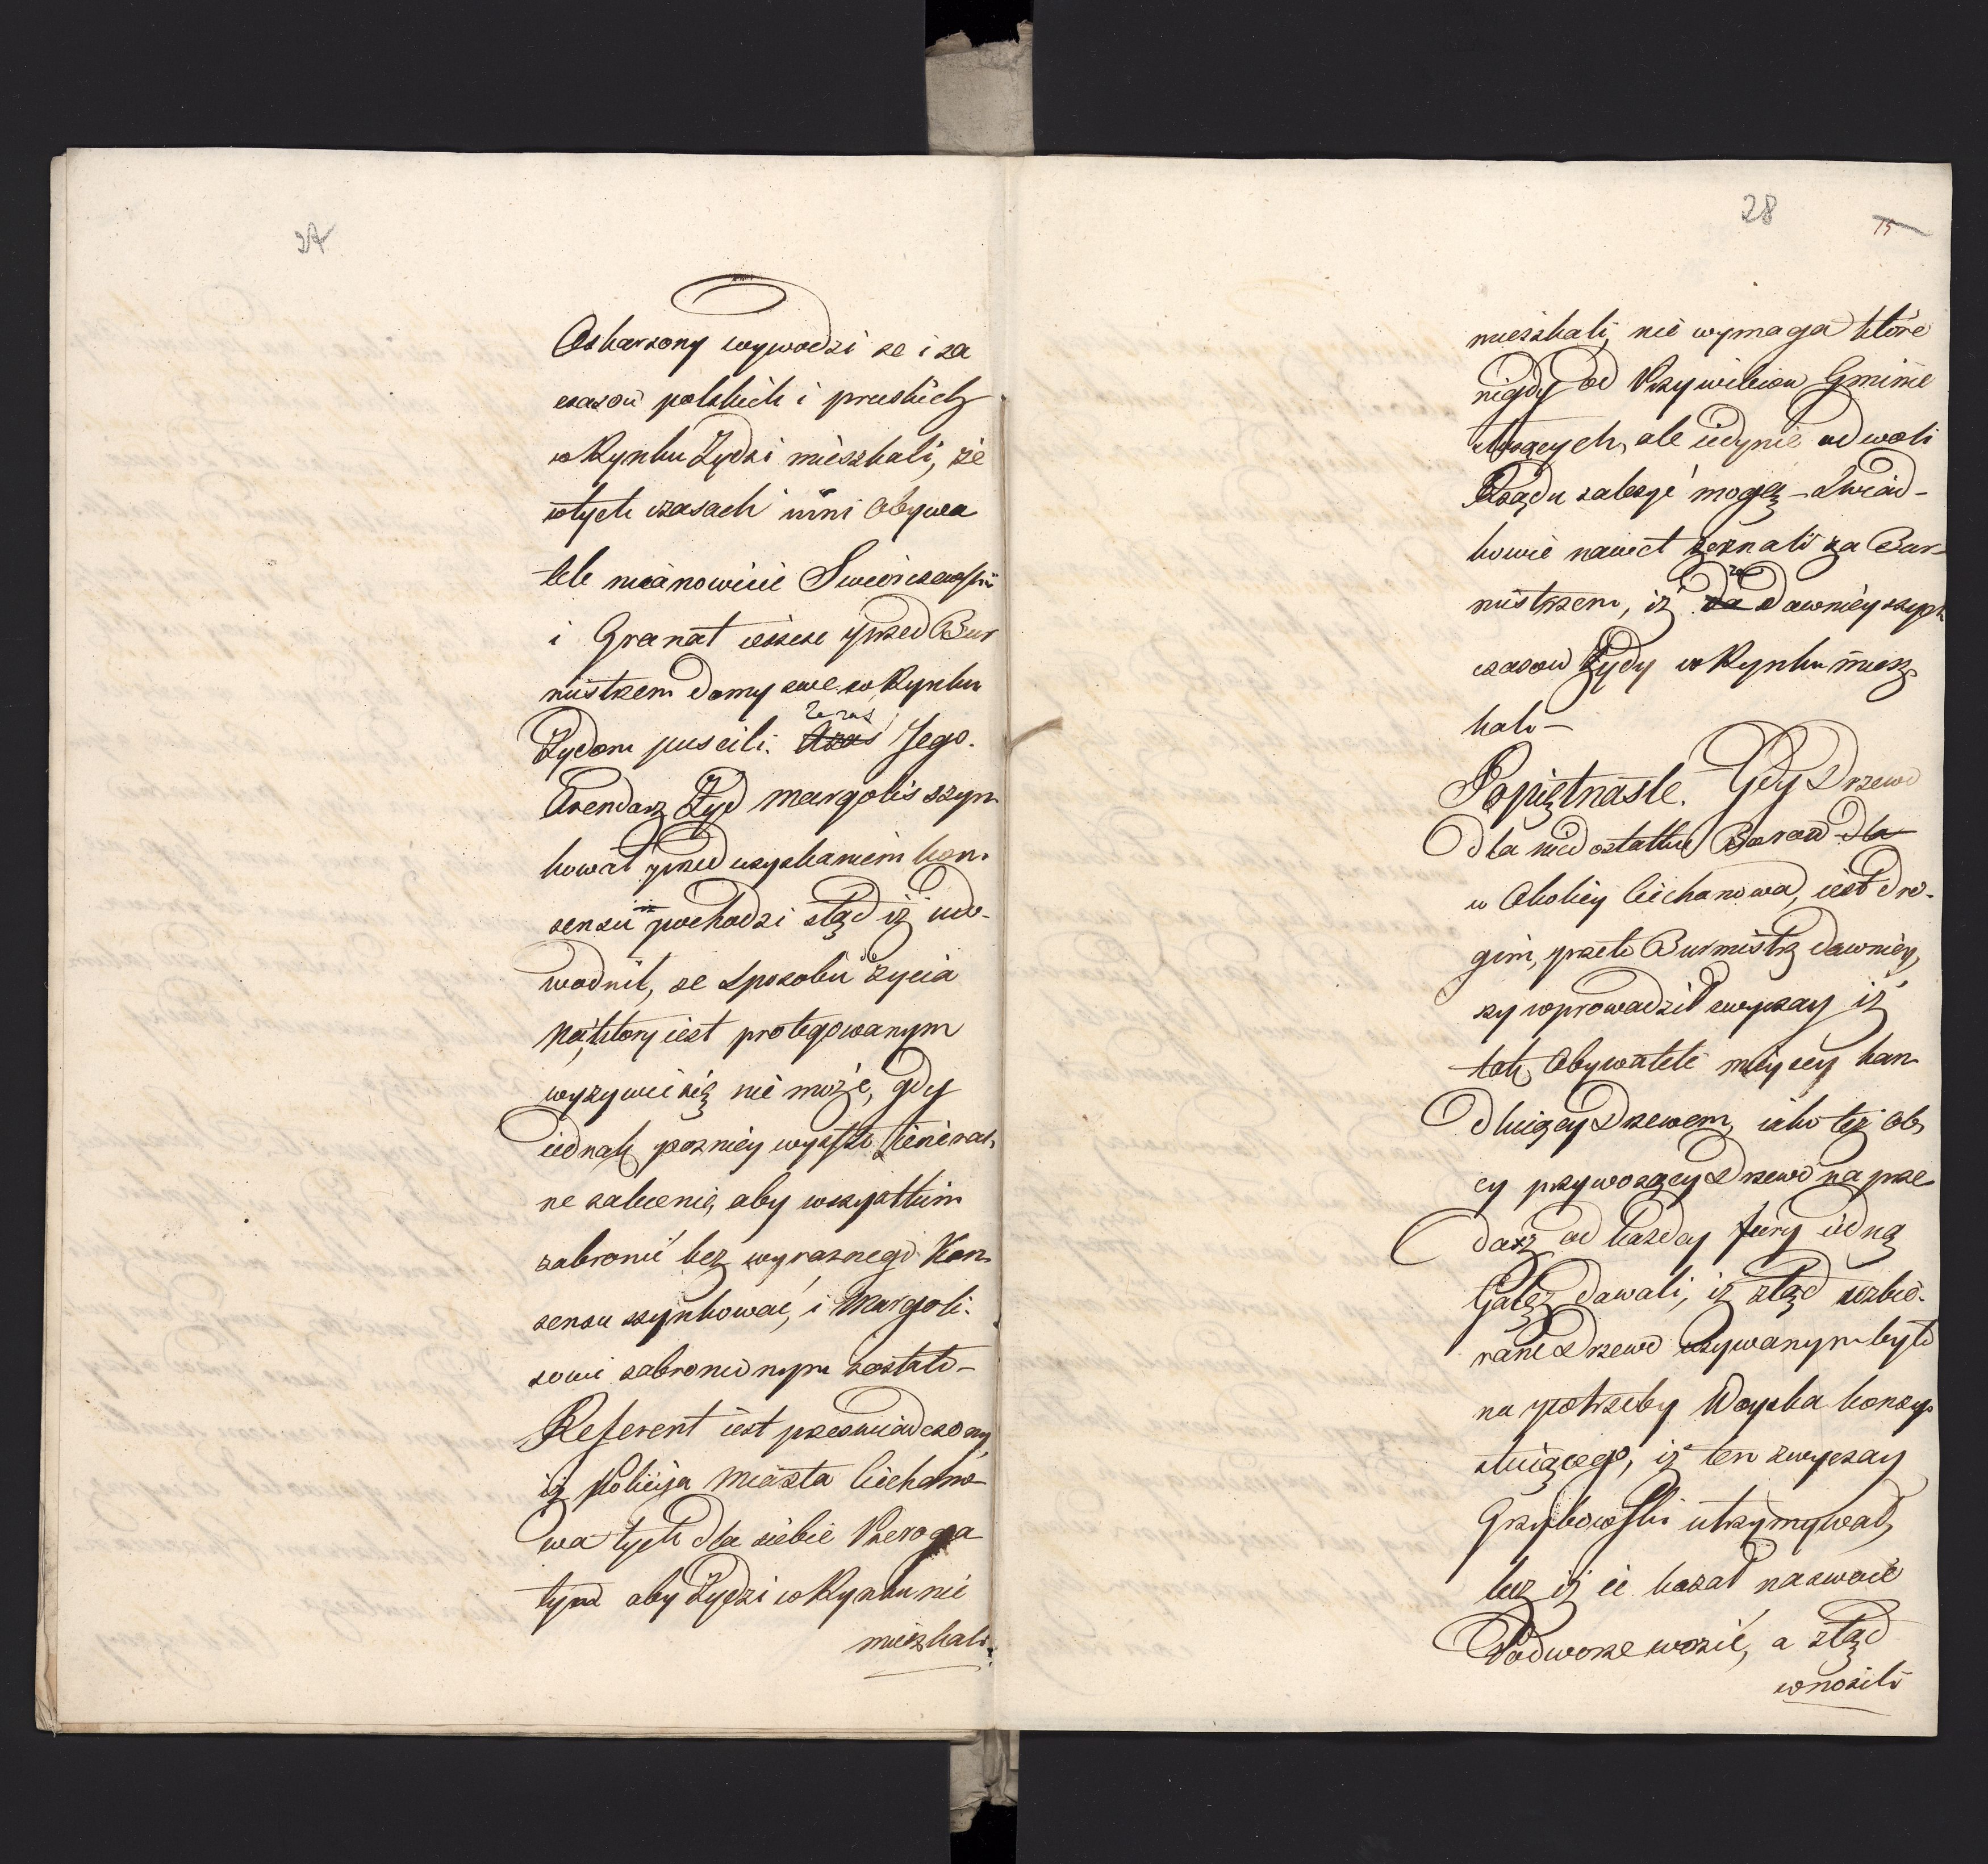 27
Oskarzony wywodzi ze i za
czasow polskich i pruskich
w Rynku Zydzi mieszkali, że
w tych czasach inni Obywa
tele mianowicie Swierczewski
i Granat ieszcze przed Bur
mistrzem domy swe w Rynku
Zydom puscili. Ze zas Jego
Arendarz Żyd Margolis szyn
kował przed uzyskaniem kon
sensu pochodzi ztąd iż udo-
wodnił, ze sposobu życia
na ktory iest protegowanym
wyzywic się nie może, gdy
iednak pozniey wyszło Genéral
ne zalecenie, aby wszystkim
zabronić bez wyraznego Kon
sensu szynkować, i Margoli-
sowi zabronionym zostało –
Referent iest przeswiadczony,
iż Policija Miasta Ciechano-
wa tych dla siebie Preroga
tyw aby Żydzi w Rynku nie
mieszkali
28
15
mieszkali, nie wymaga które
nigdy od Przywileiow Gminie
służących, ale iedynie od woli
Rządu zależyć mogą – Swiad-
kowie nawet zeznali za Bur-
mistrzem, iż za dawnieyszych
czasow Żydy w Rynku miesz
kali –
Popiętnaste. Gdy Drzewo
dla niedostatku Borow
w Okolicy Ciechanowa, iest dro-
gim, przeto Burmistrz dawniey
szy wprowadził zwyczay iż
tak Obywatele mieyscy han
dluiący Drzewem, iako też ob
cy przywozący Drzewo na prze
daż od każdey fury iedną
Gałęź dawali, iż ztąd uzbie-
rane Drzewo używanym było
na potrzeby Woyska konsy-
stuiącego, iż ten zwyczay
Grzybowski utrzymywał,
lecz iż ie kazał na swoie
Podworze wozić, a ztąd
wnosili